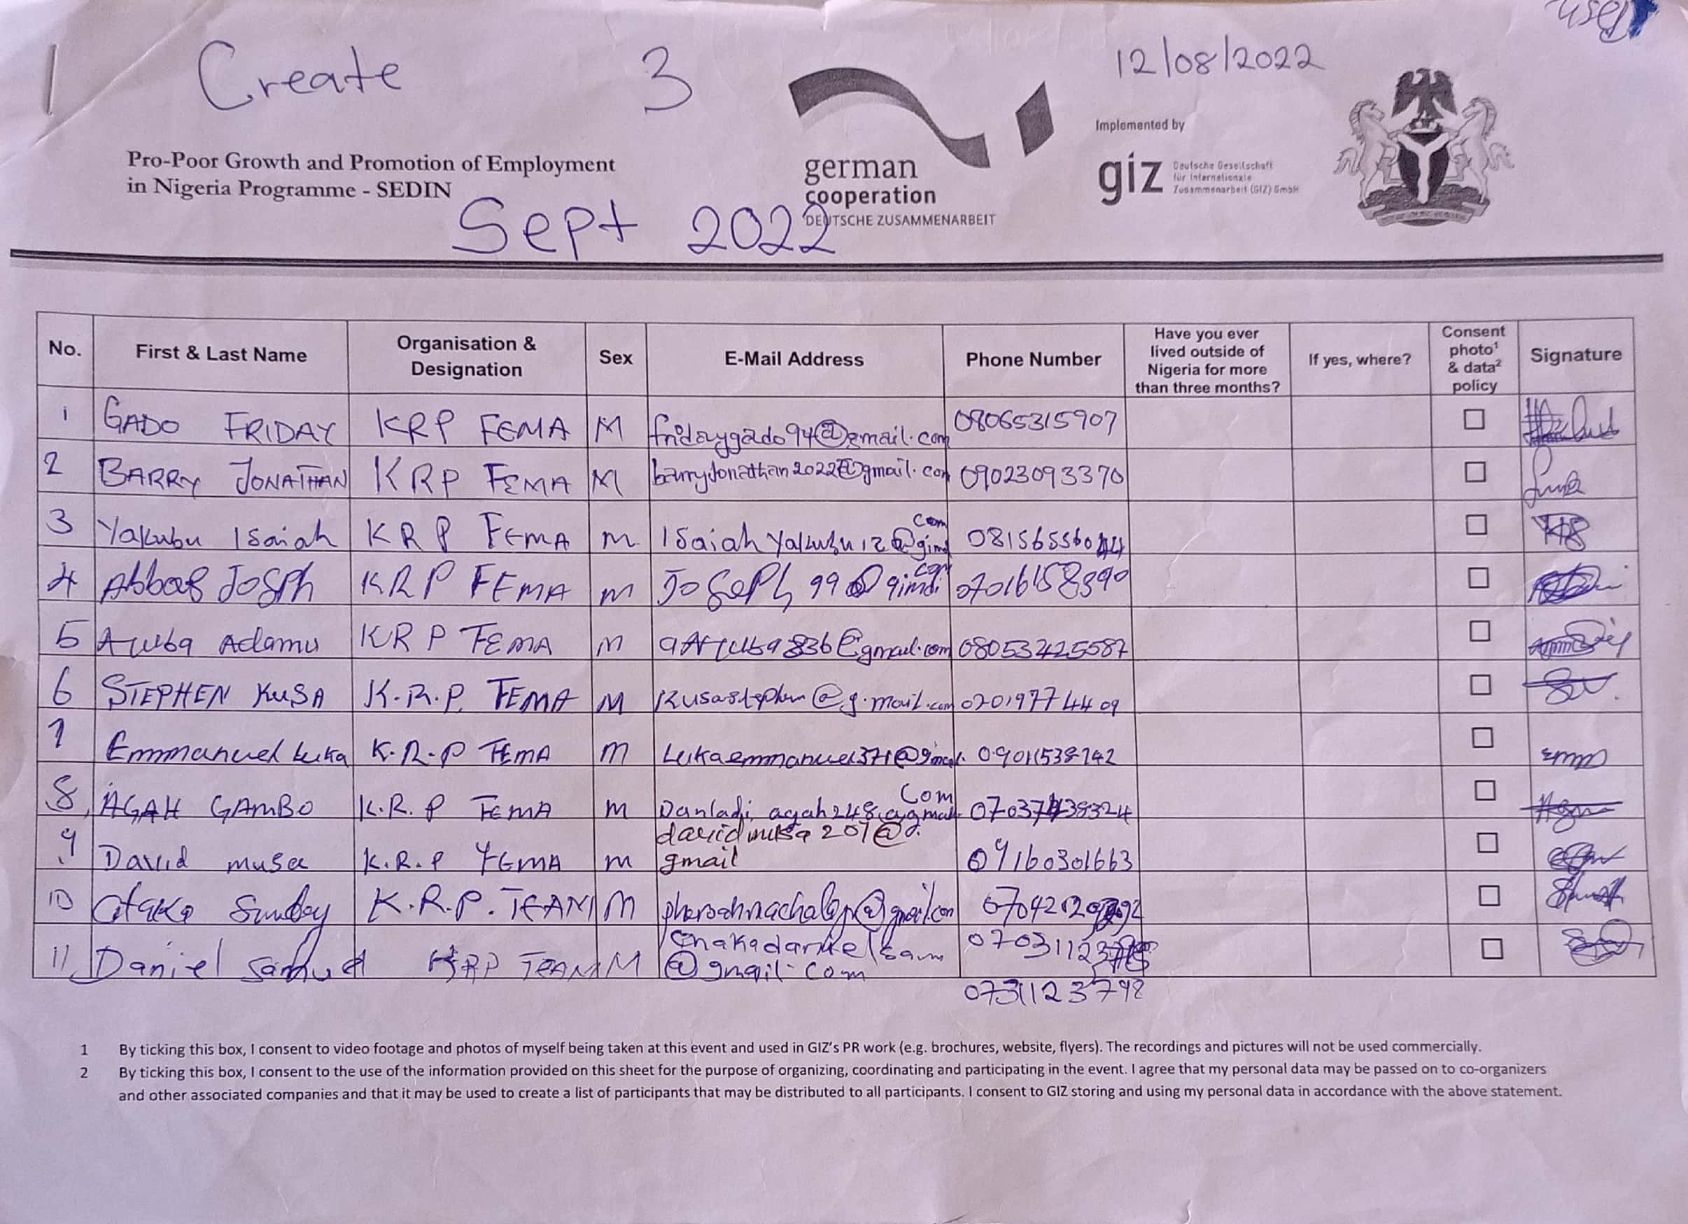 used
Create 3 12/08/2022
Implemented by
Pro-Poor Growth and Promotion of Employment
in Nigeria Programme - SEDIN
german
cooperation
DEUTSCHE ZUSAMMENARBEIT
giz Deutsche Gesellschaft
für Internationale
Zusammenarbeit (GIZ) GmbH
Sept 2022
No. First & Last Name Organisation & Designation Sex E-Mail Address Phone Number Have you ever lived outside of Nigeria for more than three months? If yes, where? Consent photo¹ & data² policy Signature
1 GADO FRIDAY KRP FEMA M fridaygado94@gmail.com 08065315907
2 BARRY JONATHAN KRP FEMA M barryjonathan2022@gmail.com 09023093370
3 Yakubu Isaiah KRP FEMA m Isaiahyakubu12@gimd com
4 Abbas Joseph KRP FEMA m Joseph99@gimdi com 07016158390
5 Adamu KRP FEMA M 08053425587
6 STEPHEN KUSA K.R.P. TEMA M Kusastephen@g.mail.com 07019774409
7 Emmanuel Luka K.R.P TEMA m 09011538742
8 AGAH GAMBO K.R.P TEMA m Danladi, agah248@gmail Com
9 David musa K.R.P TEMA m davidmusa201@g.
gmail 09160301663
10 Sunday K.R.P. TEAM M
11 Daniel Samuel KRP TEAM M
@gmail.com
07031123798
1 By ticking this box, I consent to video footage and photos of myself being taken at this event and used in GIZ's PR work (e.g. brochures, website, flyers). The recordings and pictures will not be used commercially.
2 By ticking this box, I consent to the use of the information provided on this sheet for the purpose of organizing, coordinating and participating in the event. I agree that my personal data may be passed on to co-organizers
and other associated companies and that it may be used to create a list of participants that may be distributed to all participants. I consent to GIZ storing and using my personal data in accordance with the above statement.